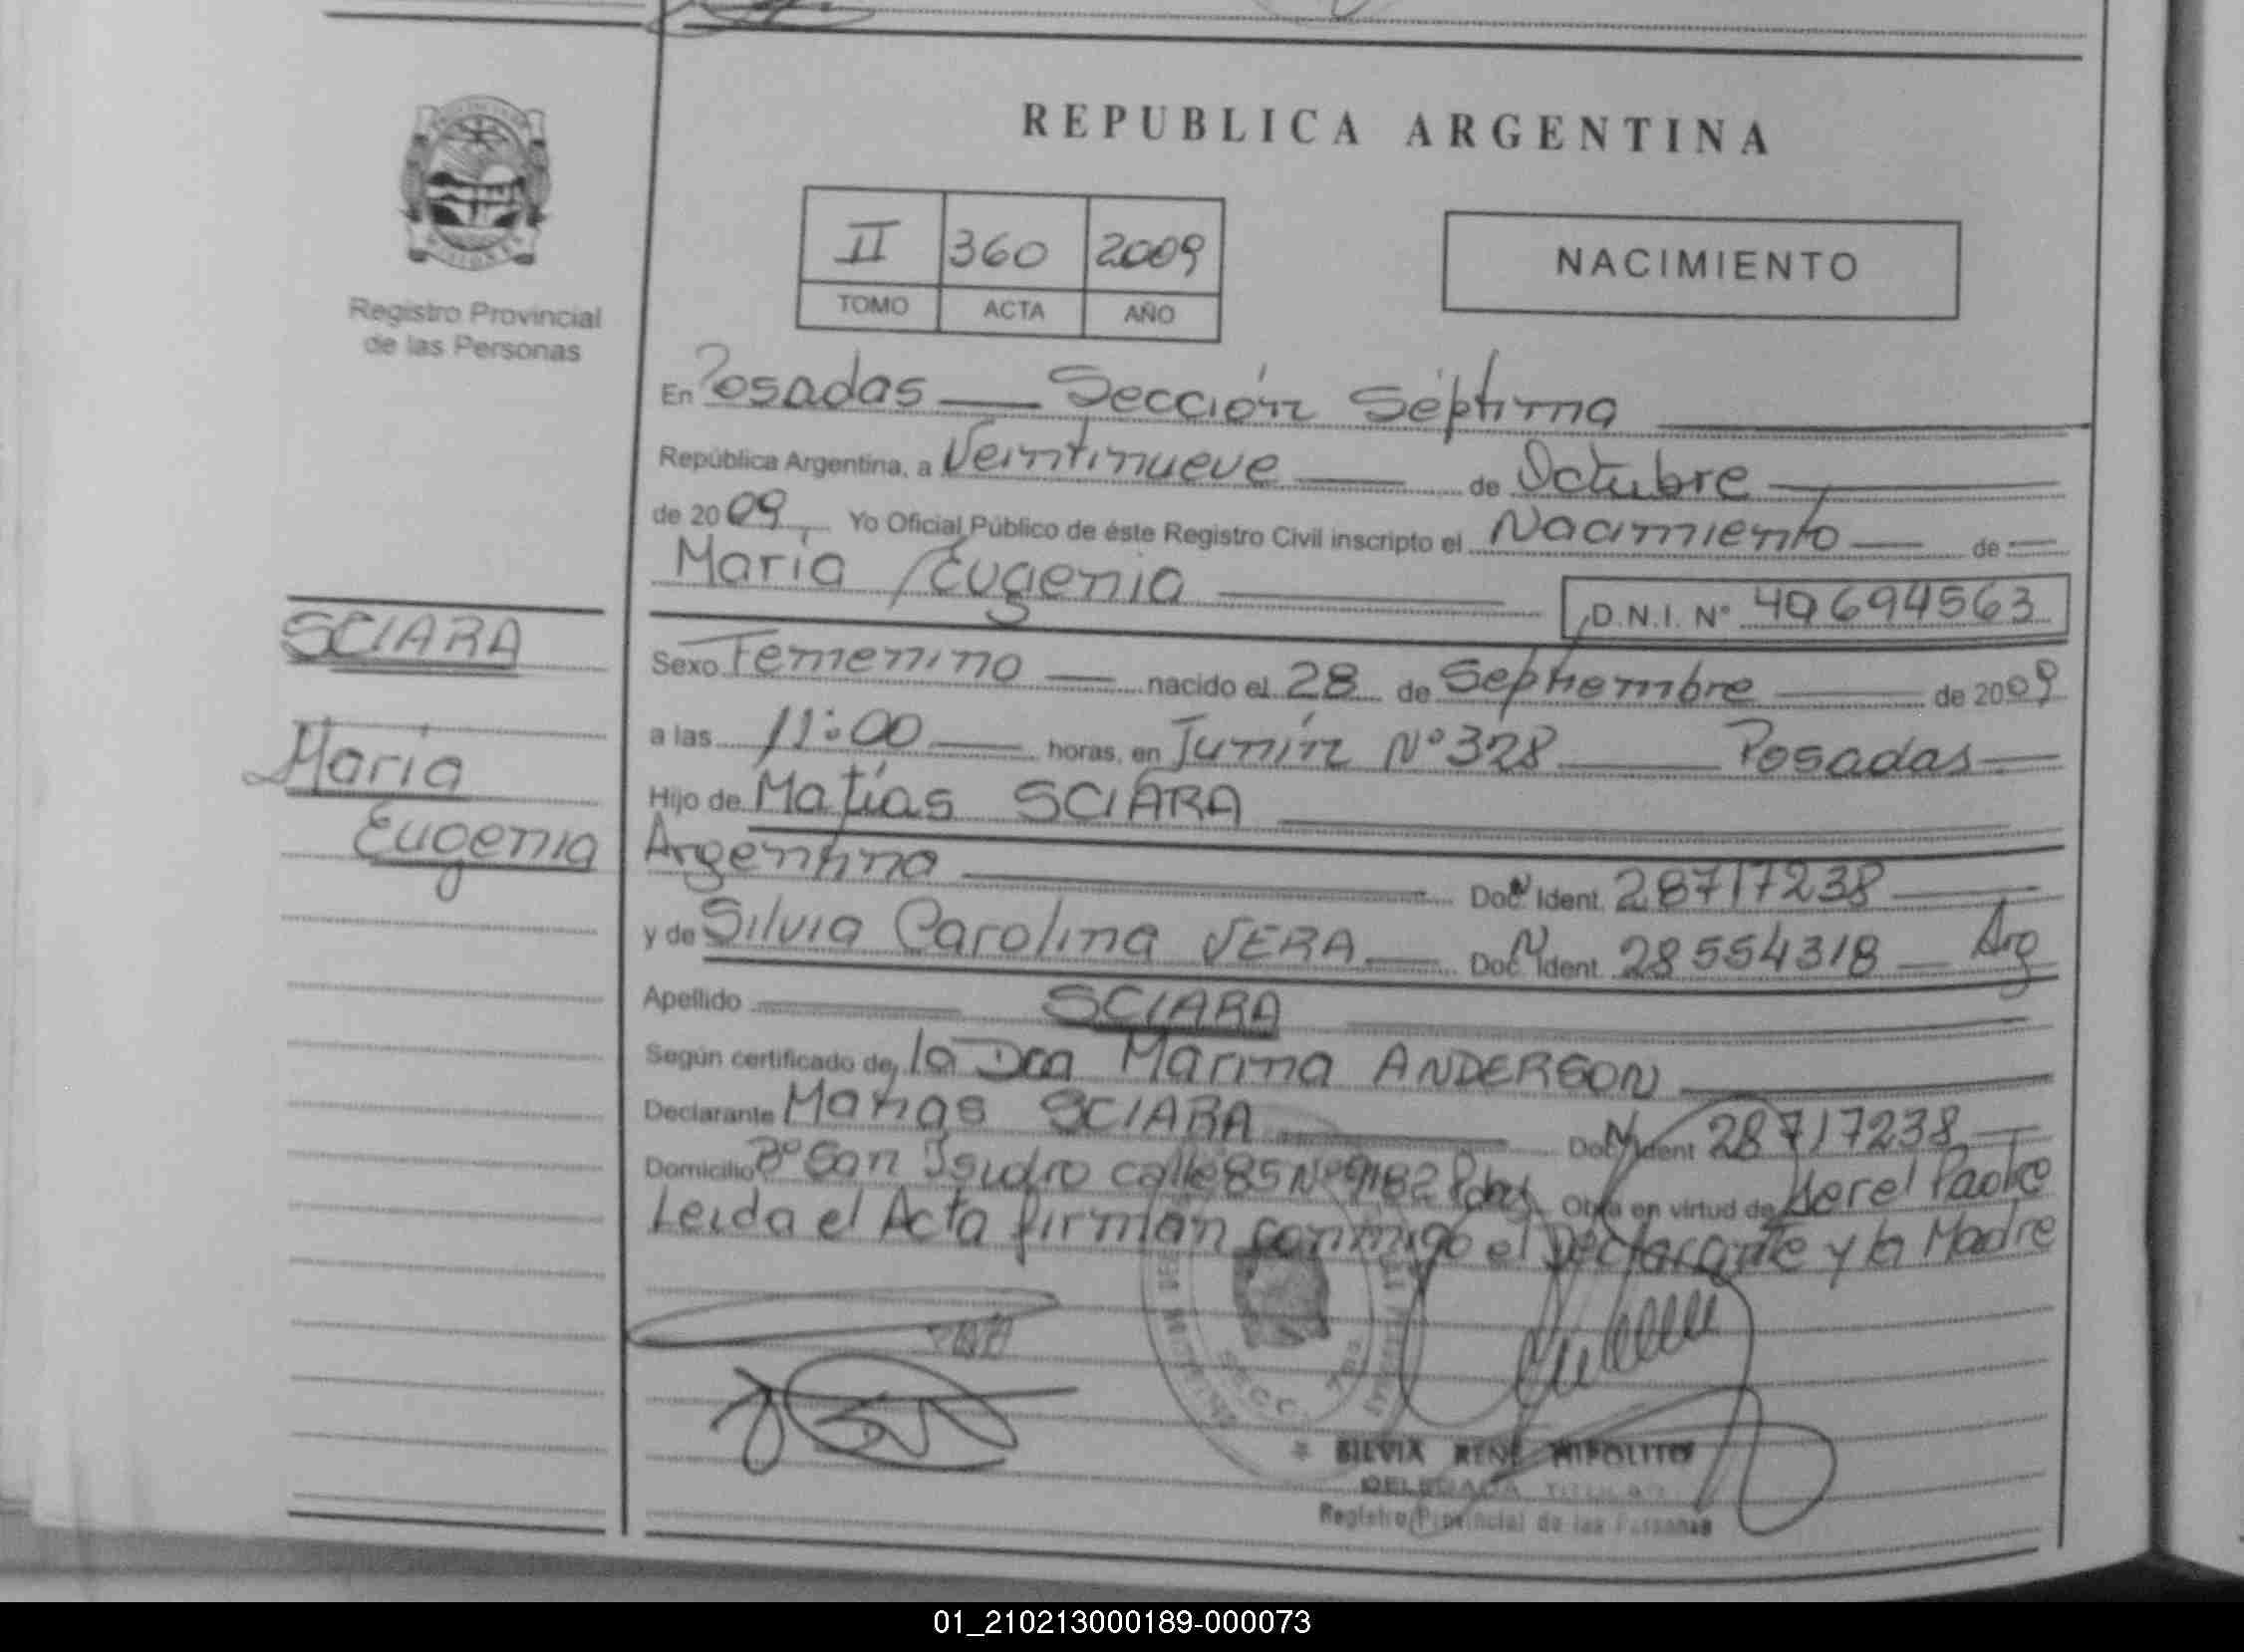 REPUBLICA ARGENTINA
II 360 2009
TOMO ACTA AÑO
NACIMIENTO
Registro Provincial
de las Personas
En Posadas — Sección Séptima
República Argentina, a Veintinueve — de Octubre
de 2009, Yo Oficial Público de éste Registro Civil inscripto el Nacimiento — de —
María Eugenia — D.N.I. Nº 49694563
SCIARA
María
Eugenia
Sexo Femenino — nacido el 28 de Septiembre — de 2009
a las 11:00 — horas, en Junín Nº 328 — Posadas —
Hijo de Matías SCIARA
Argentino — Doc. Nº Ident. 28717238 —
y de Silvia Carolina VERA — Doc. Nº Ident. 28554318 — Arg
Apellido SCIARA
Según certificado de la Dra Marina ANDERSON
Declarante Matías SCIARA — Doc. Nº Ident 28717238 —
Domicilio Bº San Isidro calle 85 Nº 9182 Pdas Obra en virtud de Ser el Padre
Leida el Acta firman conmigo el Declarante y la Madre
SECC. 7ma
SILVIA RENE HIPOLITO
DELEGADA TITULAR
Registro Provincial de las Personas
01_210213000189-000073